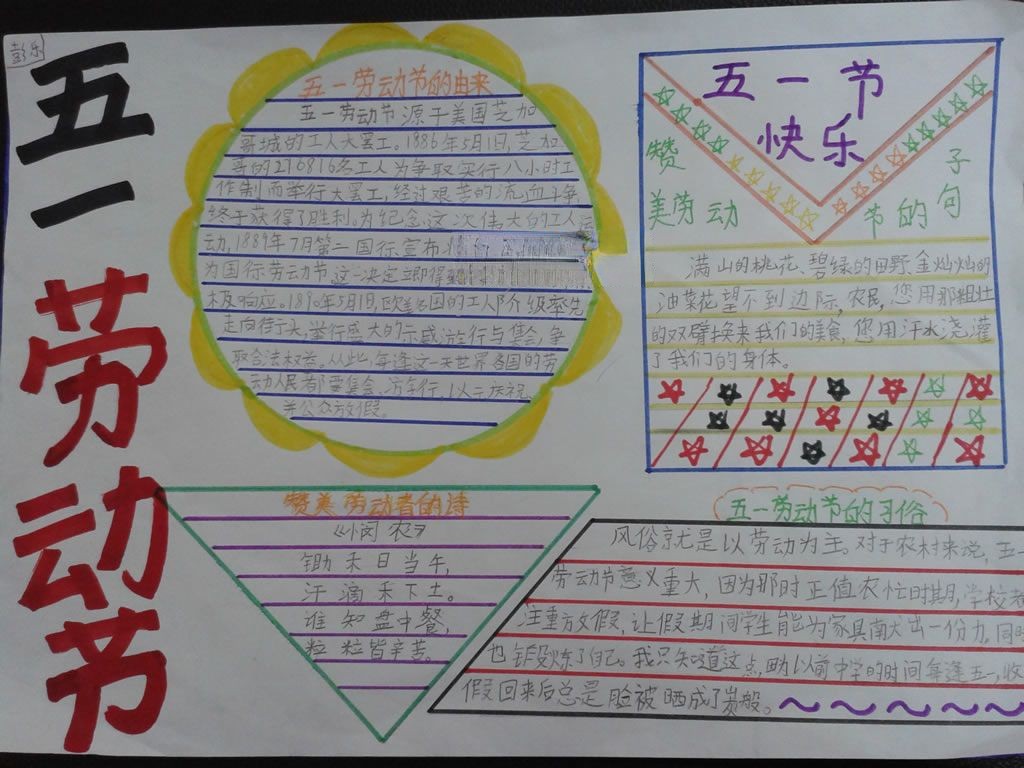 彭乐
五一劳动节
五一劳动节的由来
五一劳动节源于美国芝加
哥城的工人大罢工。1886年5月1日,芝加
哥的216816名工人为争取实行八小时工
作制而举行大罢工,经过艰苦的流血斗争,
终于获得了胜利。为纪念这次伟大的工人运
动,1889年7月第二国际宣布
为国际劳动节。这一决定立即得
极响应。1890年5月1日,欧美各国的工人阶级率先
走向街头,举行盛大的示威游行与集会,争
取合法权益。从此,每逢这一天世界各国的劳
动人民都要集会、游行,以示庆祝,
并公众放假。
五一节
快乐
赞美劳动节的句子
满山的桃花、碧绿的田野,金灿灿的
油菜花望不到边际,农民,您用那粗壮
的双臂换来我们的美食,您用汗水浇灌
了我们的身体。
赞美劳动者的诗
《悯农》
锄禾日当午,
汗滴禾下土。
谁知盘中餐,
粒粒皆辛苦。
五一劳动节的习俗
风俗就是以劳动为主。对于农村来说,五一
劳动节意义重大,因为那时正值农忙时期,学校者
注重放假,让假期间学生能为家贡献出一份力,同时
也锻炼了自己。我只知道这点,以前中学的时间每逢五一,收
假回来后总是脸被晒成了炭般。